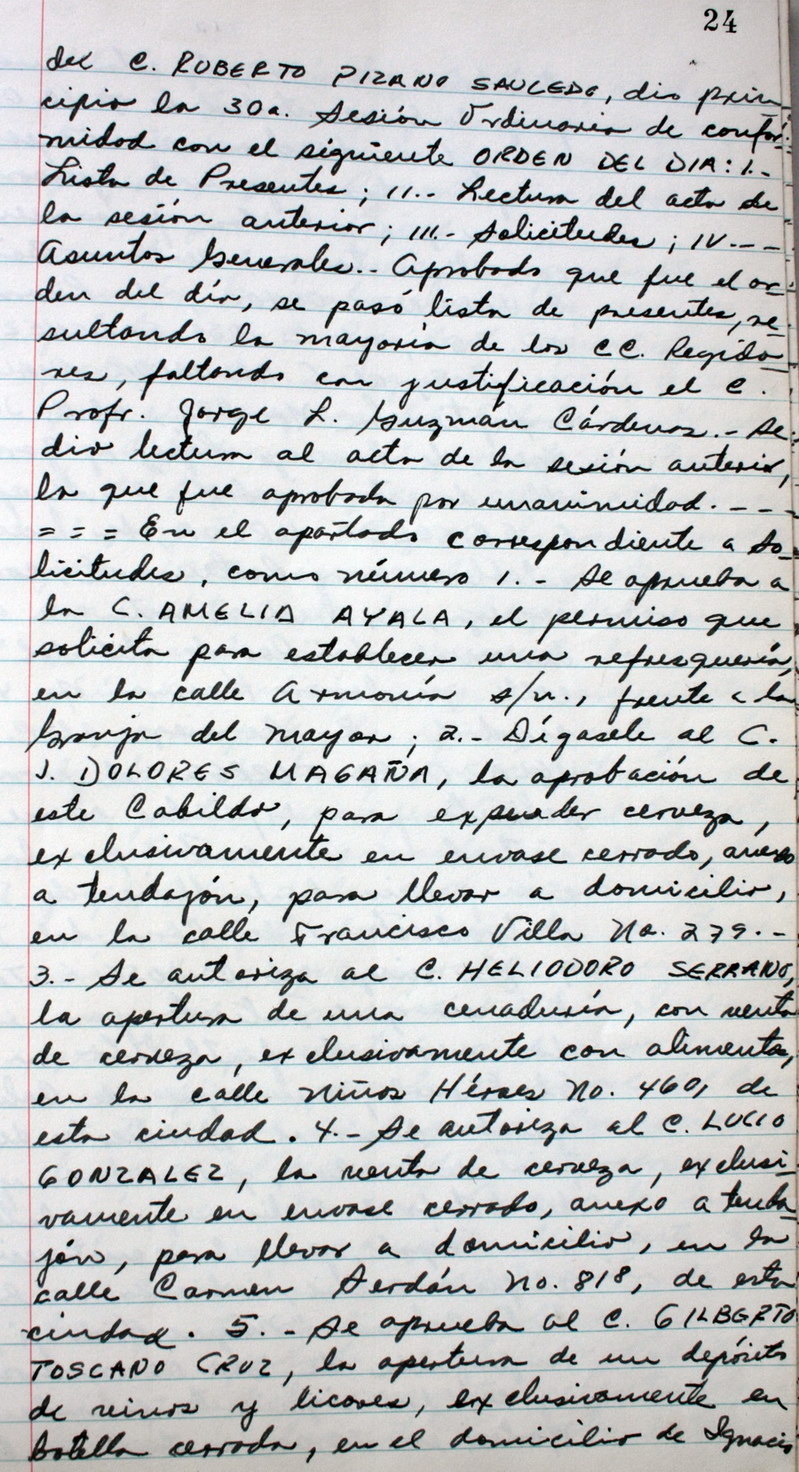 24
del C. ROBERTO PIZANO SAUCEDO, dio prin
cipio la 30a. Sesión Ordinaria de confor-
midad con el siguiente ORDEN DEL DIA: I.-
Lista de Presentes; II.- Lectura del acta de
la sesión anterior; III.- Solicitudes; IV.- - -
Asuntos Generales.- Aprobado que fue el or-
den del día, se pasó lista de presentes, re-
sultando la mayoría de los CC. Regido-
res, faltando con justificación el C.
Profr. Jorge L. Guzmán Cárdenas.- Se
dio lectura al acta de la sesión anterior,
la que fue aprobada por unanimidad. - - -
= = = En el apartado correspondiente a So-
licitudes, como número 1.- Se aprueba a
la C. AMELIA AYALA, el permiso que
solicita para establecer una refresquería,
en la calle Armonía s/n., frente a la
Granja del Mayor; 2.- Dígasele al C.
J. DOLORES MAGAÑA, la aprobación de
este Cabildo, para expender cerveza,
exclusivamente en envase cerrado, anexo
a tendajón, para llevar a domicilio,
en la calle Francisco Villa No. 279.-
3.- Se autoriza al C. HELIODORO SERRANO,
la apertura de una cenaduría, con venta
de cerveza, exclusivamente con alimentos,
en la calle Niños Héroes No. 460, de
esta ciudad. 4.- Se autoriza al C. LUCIO
GONZALEZ, la venta de cerveza, exclusi-
vamente en envase cerrado, anexo a tenda-
jón, para llevar a domicilio, en la
calle Carmen Serdán No. 818, de esta
ciudad. 5.- Se aprueba al C. GILBERTO
TOSCANO CRUZ, la apertura de un depósito
de vinos y licores, exclusivamente en
botella cerrada, en el domicilio de Ignacio